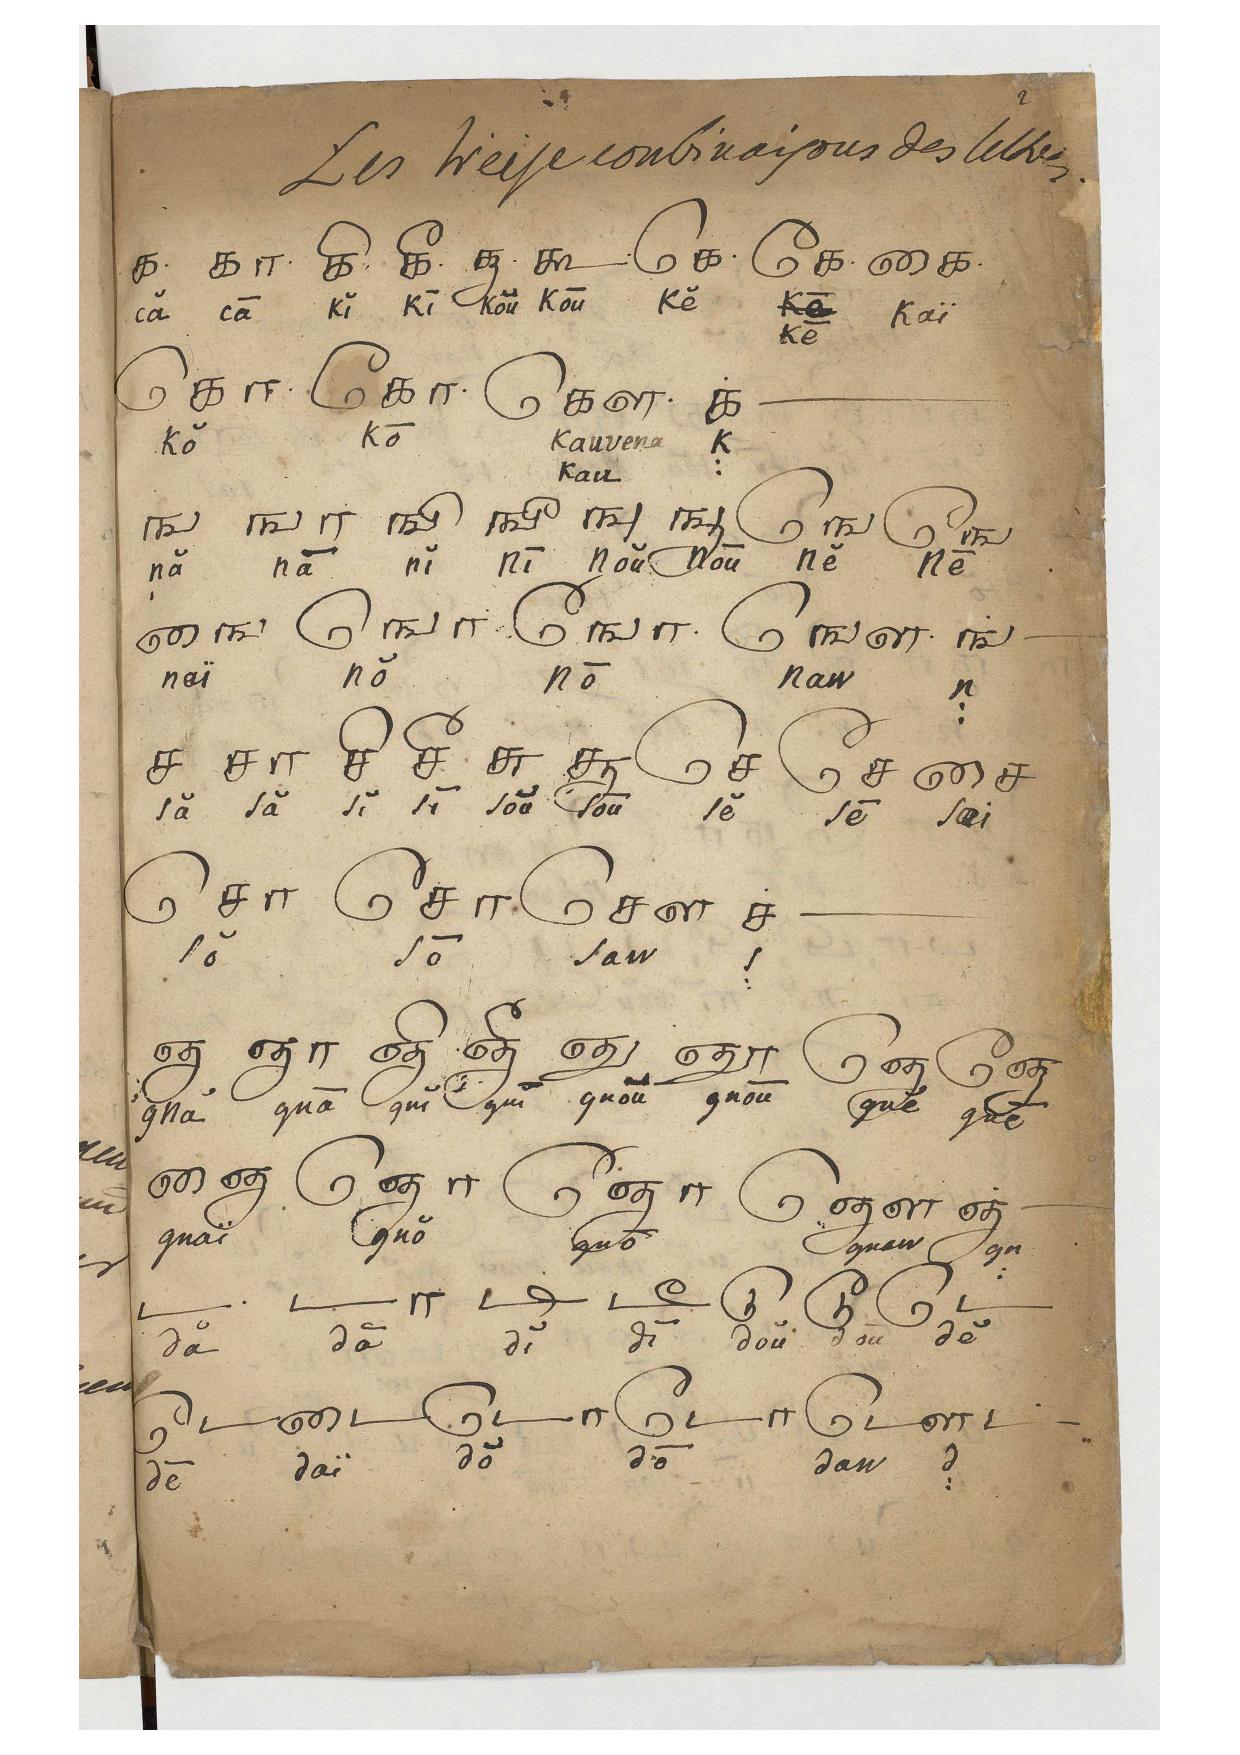 2
Les treize combinaisons des lettres.
க. கா. கி. கீ. கு. கூ. கெ. கே. கை.
că cā kĭ kī koŭ koū kĕ kē kaï
kē
கொ. கோ. கௌ. க்
kŏ kō kauvena k
kau
ங ஙா ஙி ஙீ ஙு ஙூ ஙெ ஙே
nă nā nĭ nī noŭ noū nĕ nē
ஙை ஙொ ஙோ. ஙௌ. ங்
naï nŏ nō naw n
ச சா சி சீ சு சூ செ சே சை
să să sĭ sī soŭ soū sĕ sē sai
சொ சோ சௌ ச்
sŏ sō saw s
ஞ ஞா ஞி ஞீ ஞு ஞூ ஞெ ஞே
gnă gnā gnĭ gnī gnoŭ gnoū gnĕ gnē
ஞை ஞொ ஞோ ஞௌ ஞ்
gnaï gnŏ gnō gnaw gn
ட. டா டி டீ டு டூ டெ
dă dā dĭ dī doŭ doū dĕ
டே டை டொ டோ டௌ ட்
dē daï dŏ dō daw d